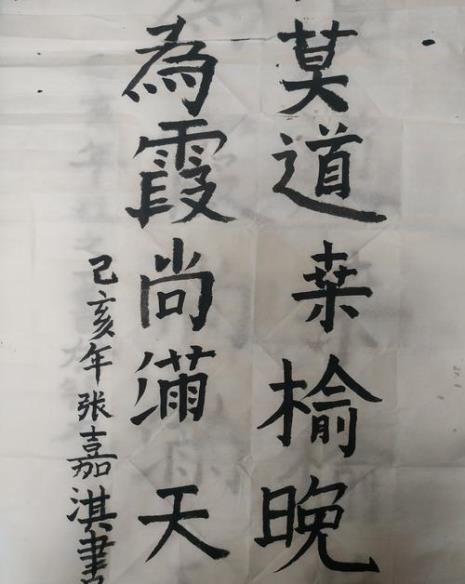 莫道桑榆晚
為霞尚满天
己亥年张嘉淇書